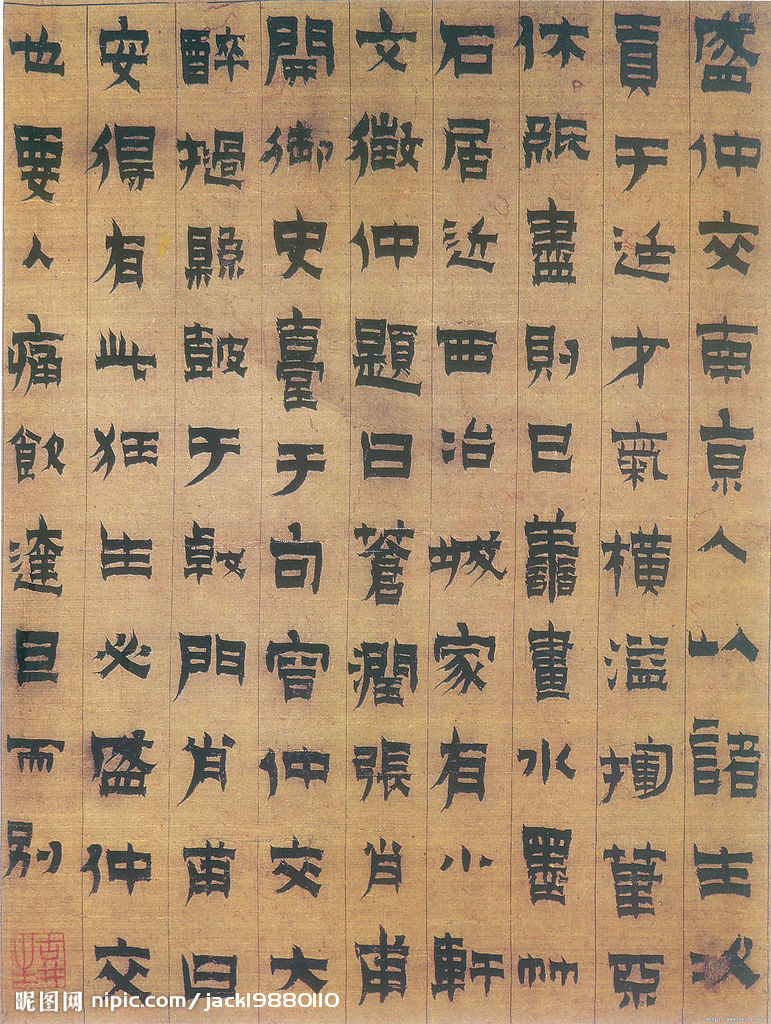 盛仲交南京人以諸生次
貢于廷才氣橫溢揮筆
休紙盡則已善畫水墨竹
石居近西冶城家有小軒
文徵仲題曰蒼潤張肖甫
開御史臺于句容仲交大
醉撾縣鼓于戟門肖甫曰
安得有此狂生必盛仲交
也要入痛飲達旦而別
昵图网 nipic.com/jack19880110